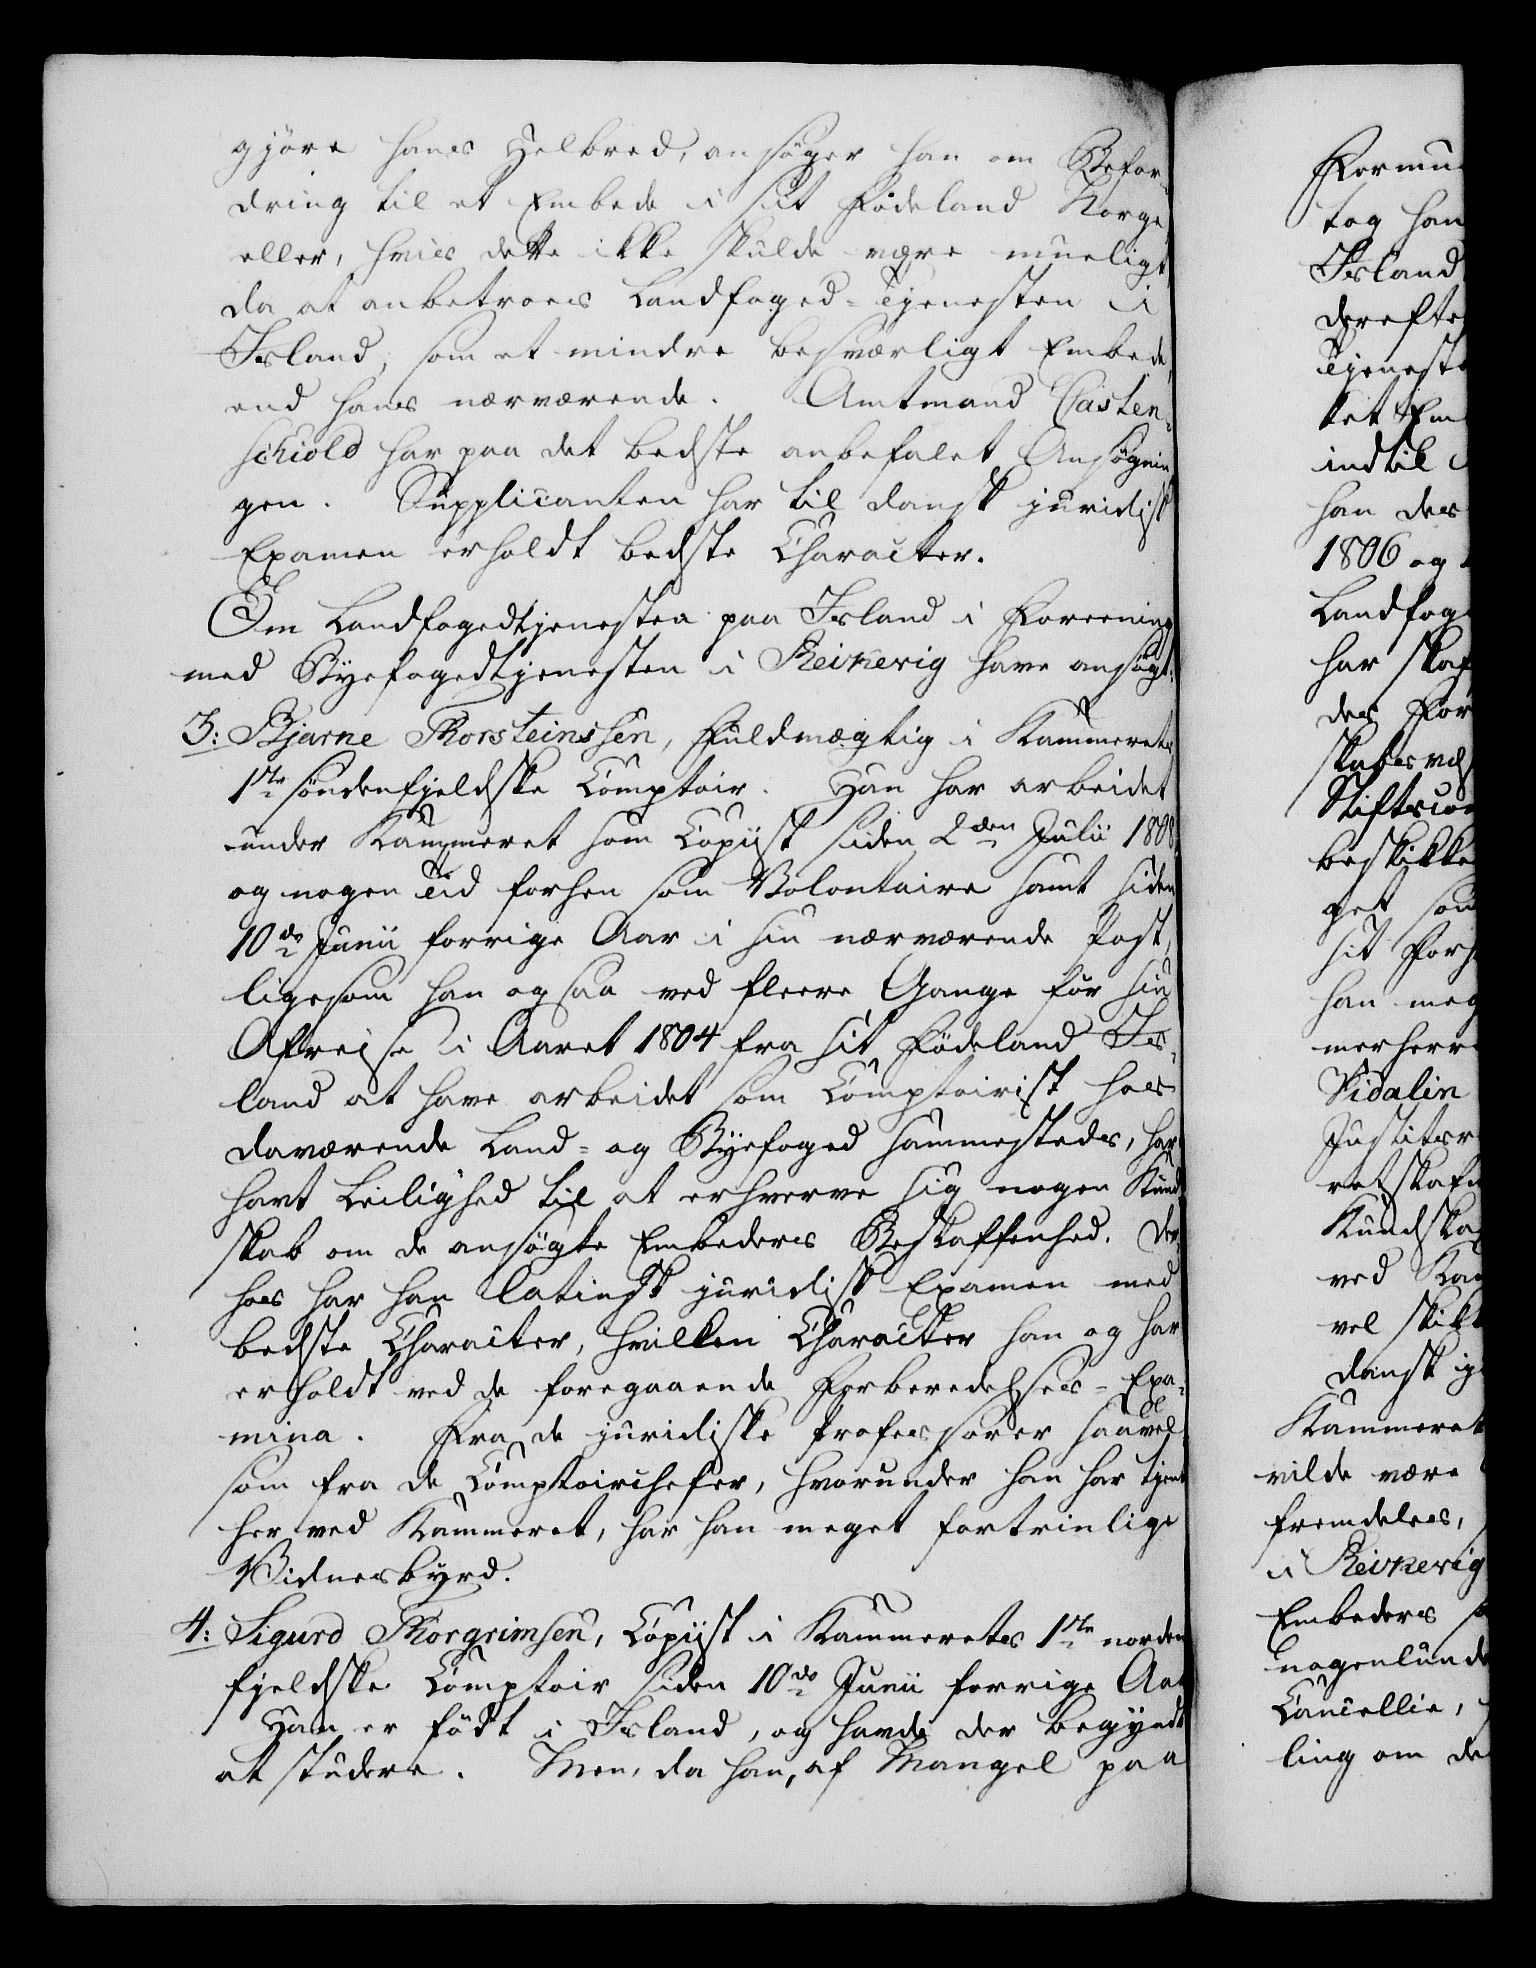 gjöre hans Helbred, ansöger han om Befor-
dring til et Embede i sit Födeland Norge,
eller, hvis dette ikke skulde være mueligt,
da at anbetroes Landfoged-Tjenesten i
Island, som et mindre besværligt Embede,
end hans nærværende. Amtmand Casten-
schiold har paa det bedste anbefalet Ansögnin-
gen. Supplicanten har til dansk juridisk
Examen erholdt bedste Character.
Om Landfogedtjenesten paa Island i Foreening
med Byefogedtjenesten i Reikevig have ansögt:
3: Bjarne Thorsteinssen, Fuldmægtig i Kammerets
1ste söndenfjeldske Comptoir. Han har arbeidet
under Kammeret som Copiist siden 2den Julii 1808
og nogen Tid forhen som Volontaire samt siden
10de Junii forrige Aar i sin nærværende Post,
ligesom han ogsaa ved fleere Gange för sin
Afreise i Aaret 1804 fra sit Födeland Is-
land at have arbeidet som Comptoirist hos
daværende Land- og Byefoged sammesteds, har
havt Leilighed til at erhverve sig nogen Kund-
skab om de ansögte Embeders Beskaffenhed. Der-
hos har han latinsk juridisk Examen med
bedste Character, hvilken Character han og har
erholdt ved de foregaaende Forberedelses-Exa-
mina. Fra de juridiske Professorer saavel
som fra de Comptoirchefer, hvorunder han har tjent
her ved Kammeret, har han meget fortrinlige
Vidnesbyrd.
4: Sigurd Thorgrimsen, Copiist i Kammerets 1ste norden-
fjeldske Comptoir siden 10de Junii forrige Aar
Han er födt i Island, og havde der begyndt
at studere. Men, da han, af Mangel paa
Formu
tog han
Island
derefte
Tjeneste
ket Em
indtil
han des
1806 og
Landfog
har skaf
des For
skabsvæ
Stiftscon
beskikke
get som
sit Forh
han meg
merherre
Vidalin
Justitsr
retskafn
Kundska
ved Kam
vel skikk
dansk j
Kammeret
vilde være
fremdeles,
i Reikevig
Embeders
nogenlunde
Cancellie,
ling om de